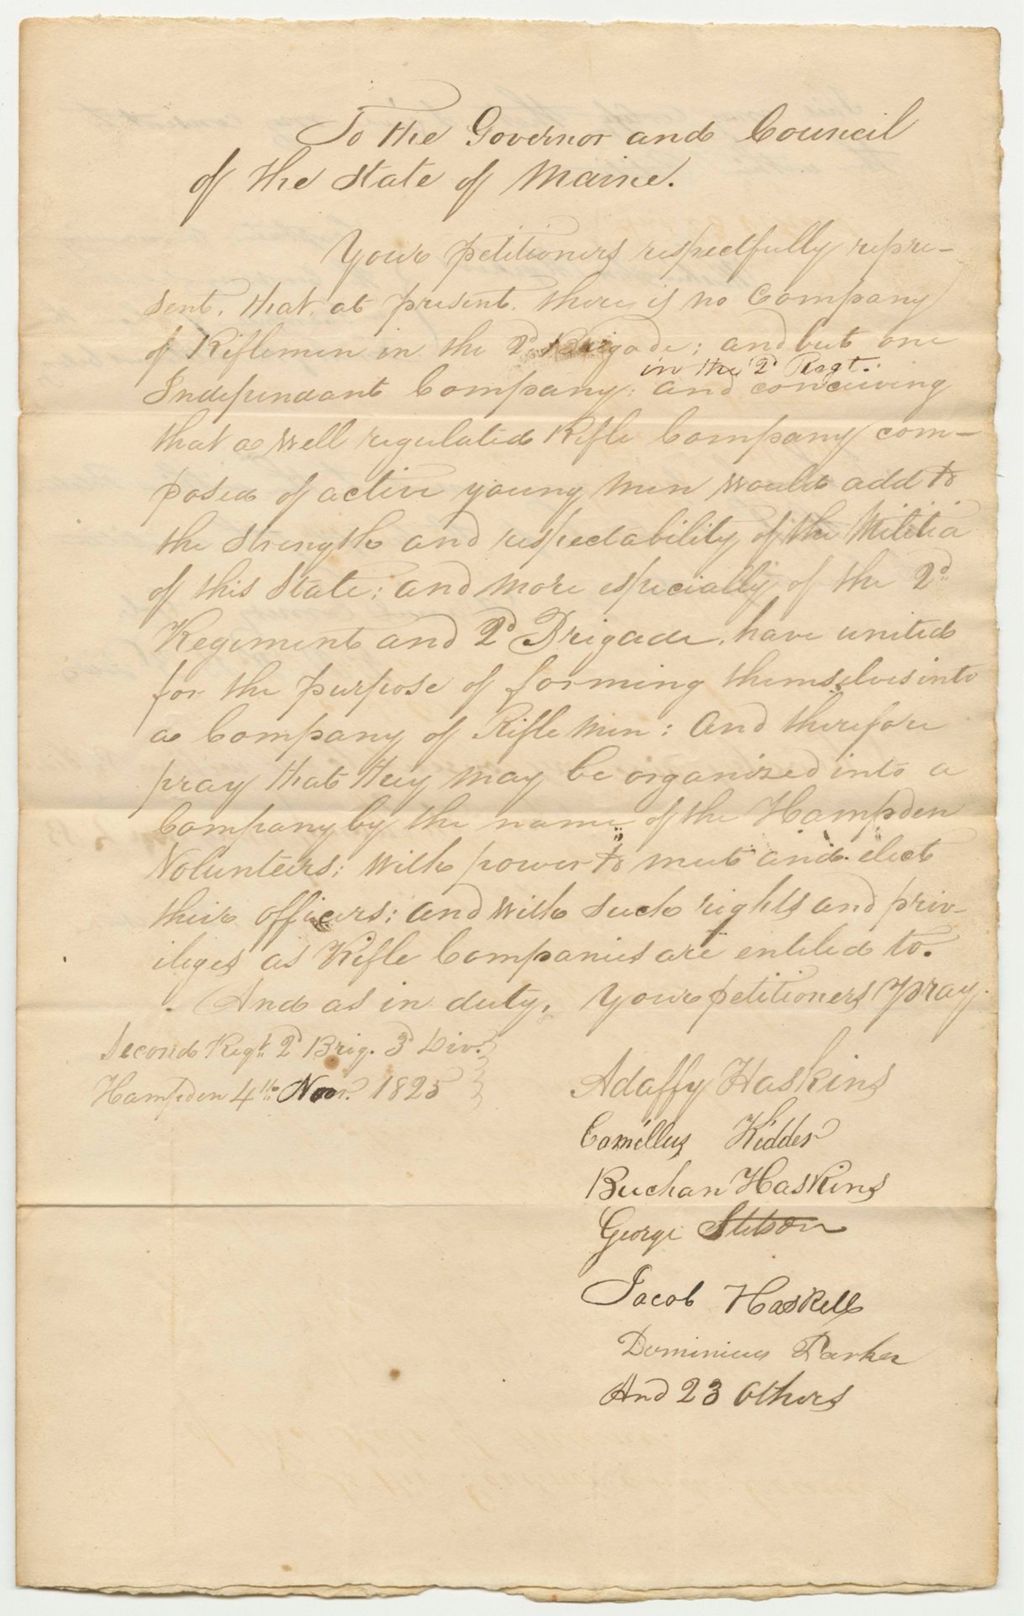 To the Governor and Council
of the State of Maine.
Your petitioners respectfully repre-
sent, that, at present, there is no Company
of Riflemen in the 2d Brigade; and but one
in the 2d Regt.
Independant Company; and conceiving
that a well regulated Rifle Company com-
posed of active young men would add to
the strength and respectability of the Militia
of this State; and more especially of the 2d
Regiment and 2d Brigade, have united
for the purpose of forming themselves into
a Company of Rifle men: And therefore
pray that they may be organized into a
Company by the name of the Hampden
Volunteers; with power to meet and elect
their officers; and with such rights and priv-
iliges as Rifle Companies are entiled to.
And as in duty, Your petitioners pray.
Second Regt. 2d Brig. 3d Div.
Hampden 4th Nov. 1825
Adaffy Haskins
Camillus Kidder
Buchan Haskins
George Stetson
Jacob Haskell
Dominicus Parker
And 23 others